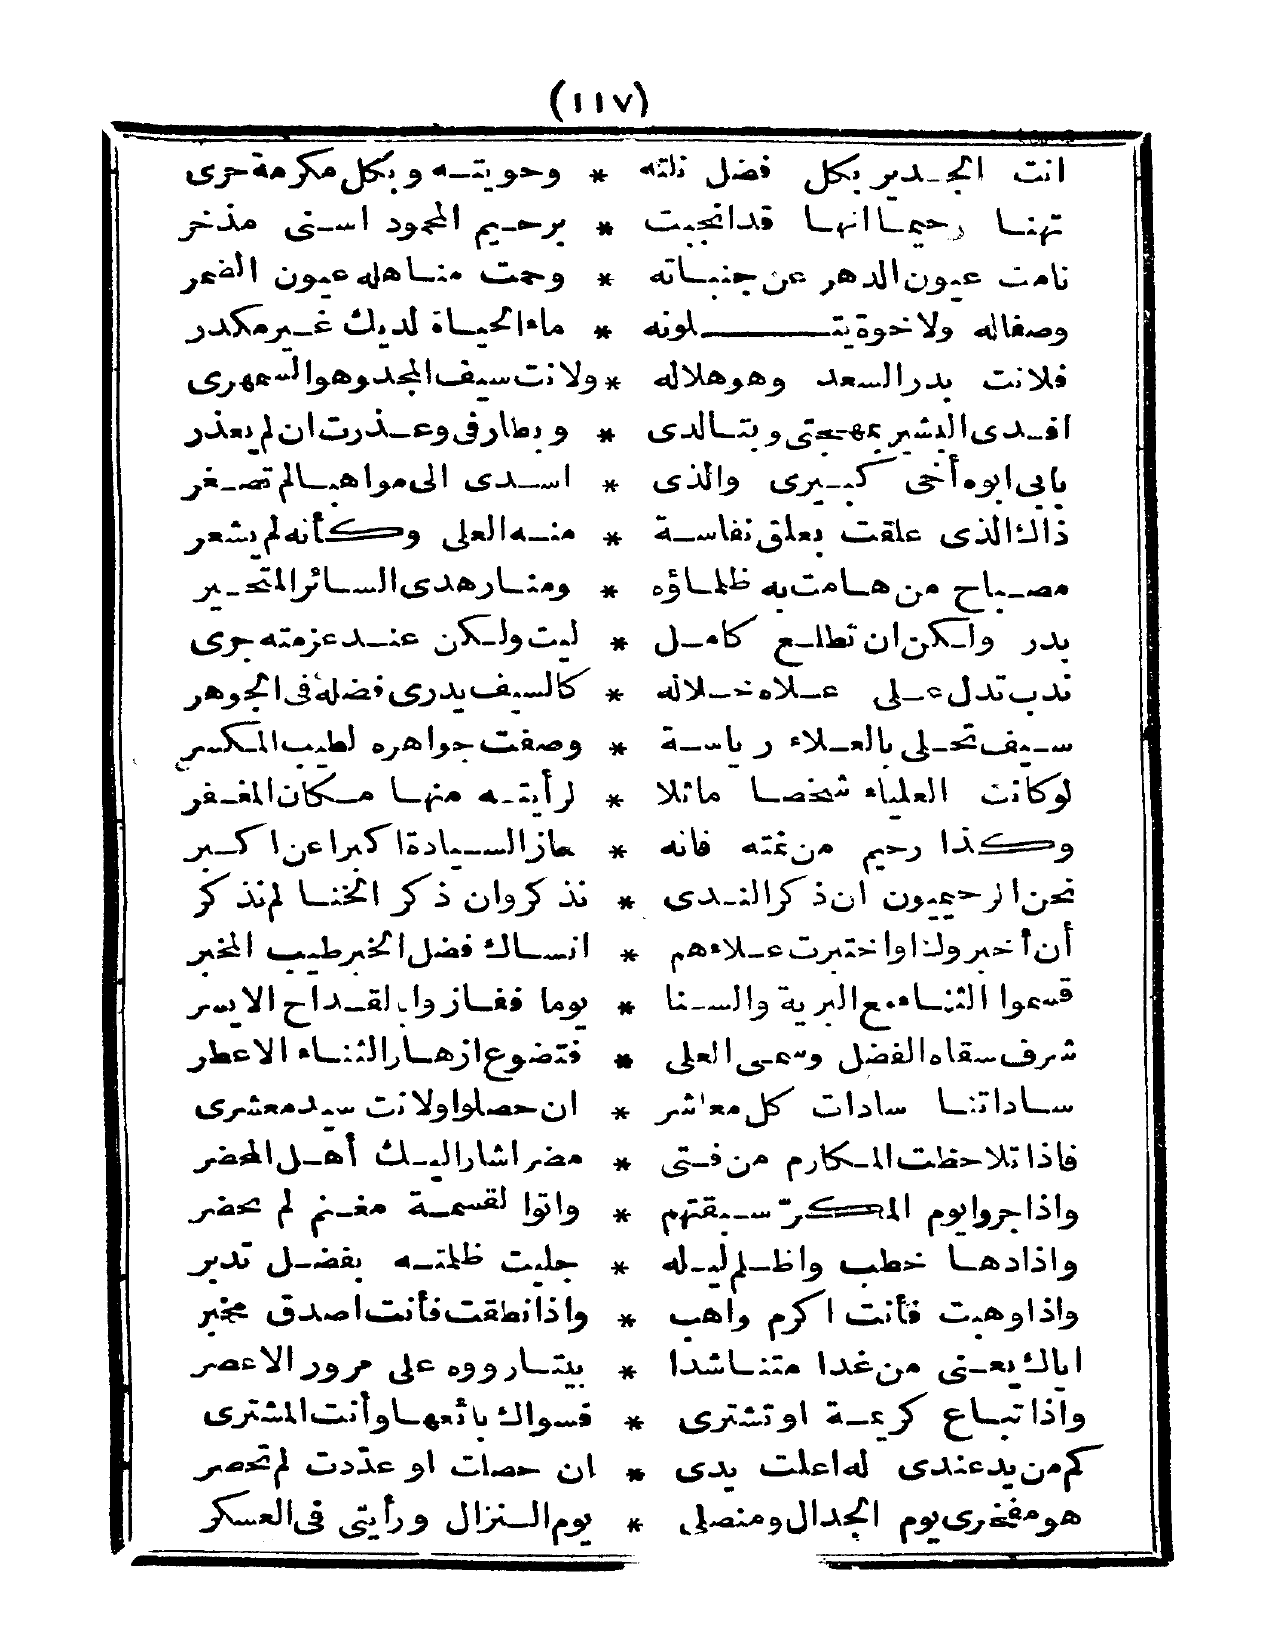 (١١٧)
انت الجدير بكل فضل نلته * وحويته وبكل مكرمة حرى
تهنا رحيما انها قد انجبت * برحيم المحمود اسنى مذخر
نامت عيون الدهر عن جنباته * وحمت مناهله عيون الضمر
وصفاله ولاخوة يتلونه * ماء الحياة لديك غير مكدر
فلانت بدر السعد وهو هلاله * ولانت سيف المجد وهو السمهرى
افدى البشير بمهجتى وبتالدى * وبطارفى وعذرت ان لم يعذر
بابى ابوه أخى كبيرى والذى * اسدى الى مواهبا لم تصغر
ذاك الذى علقت بعلق نفاسة * منه العلى وكأنه لم يشعر
مصباح من هامت به ظلماؤه * ومنار هدى السائر المتحير
بدر ولكن ان تطلع كامل * ليت ولكن عند عزمته جرى
ندب تدل على علاه خلاله * كالسيف يدرى فضله فى الجوهر
سيف تحلى بالعلاء رياسة * وصفت جواهره لطيب المكسر
لو كانت العلياء شخصا ماثلا * لرأيته منها مكان المغفر
وكذا رحيم من غته فانه * حاز السيادة اكبرا عن اكبر
نحن الرحيميون ان ذكر الندى * نذكر وان ذكر الخنا لم نذكر
أن أخبرولذا واختبرت علاءهم * انساك فضل الخبر طيب المخبر
قسموا الثناء مع البرية والسنا * يوما ففازوا بالقداح الايسر
شرف سقاه الفضل وسمى العلى * فتضوع ازهار الثناء الاعطر
ساداتنا سادات كل معاشر * ان حصلوا ولانت سيد معشرى
فاذا تلاحظت المكارم من فتى * مضر اشار اليك أهل المحضر
واذا جروا يوم المكرّ سبقتهم * واتوا لقسمة مغنم لم تحضر
واذا دها خطب واظلم ليله * جليت ظلمته بفضل تدبر
واذا وهبت فأنت اكرم واهب * واذا نطقت فأنت اصدق مخبر
اياك يعنى من غدا متناشدا * بيتا رووه على مرور الاعصر
واذا تباع كريمة او تشترى * فسواك بائعها وأنت المشترى
كم من يد عندى له اعلت يدى * ان حصلت او عدّدت لم تحصر
هو مفخرى يوم الجدال ومنصلى * يوم النزال ورأيتى فى العسكر